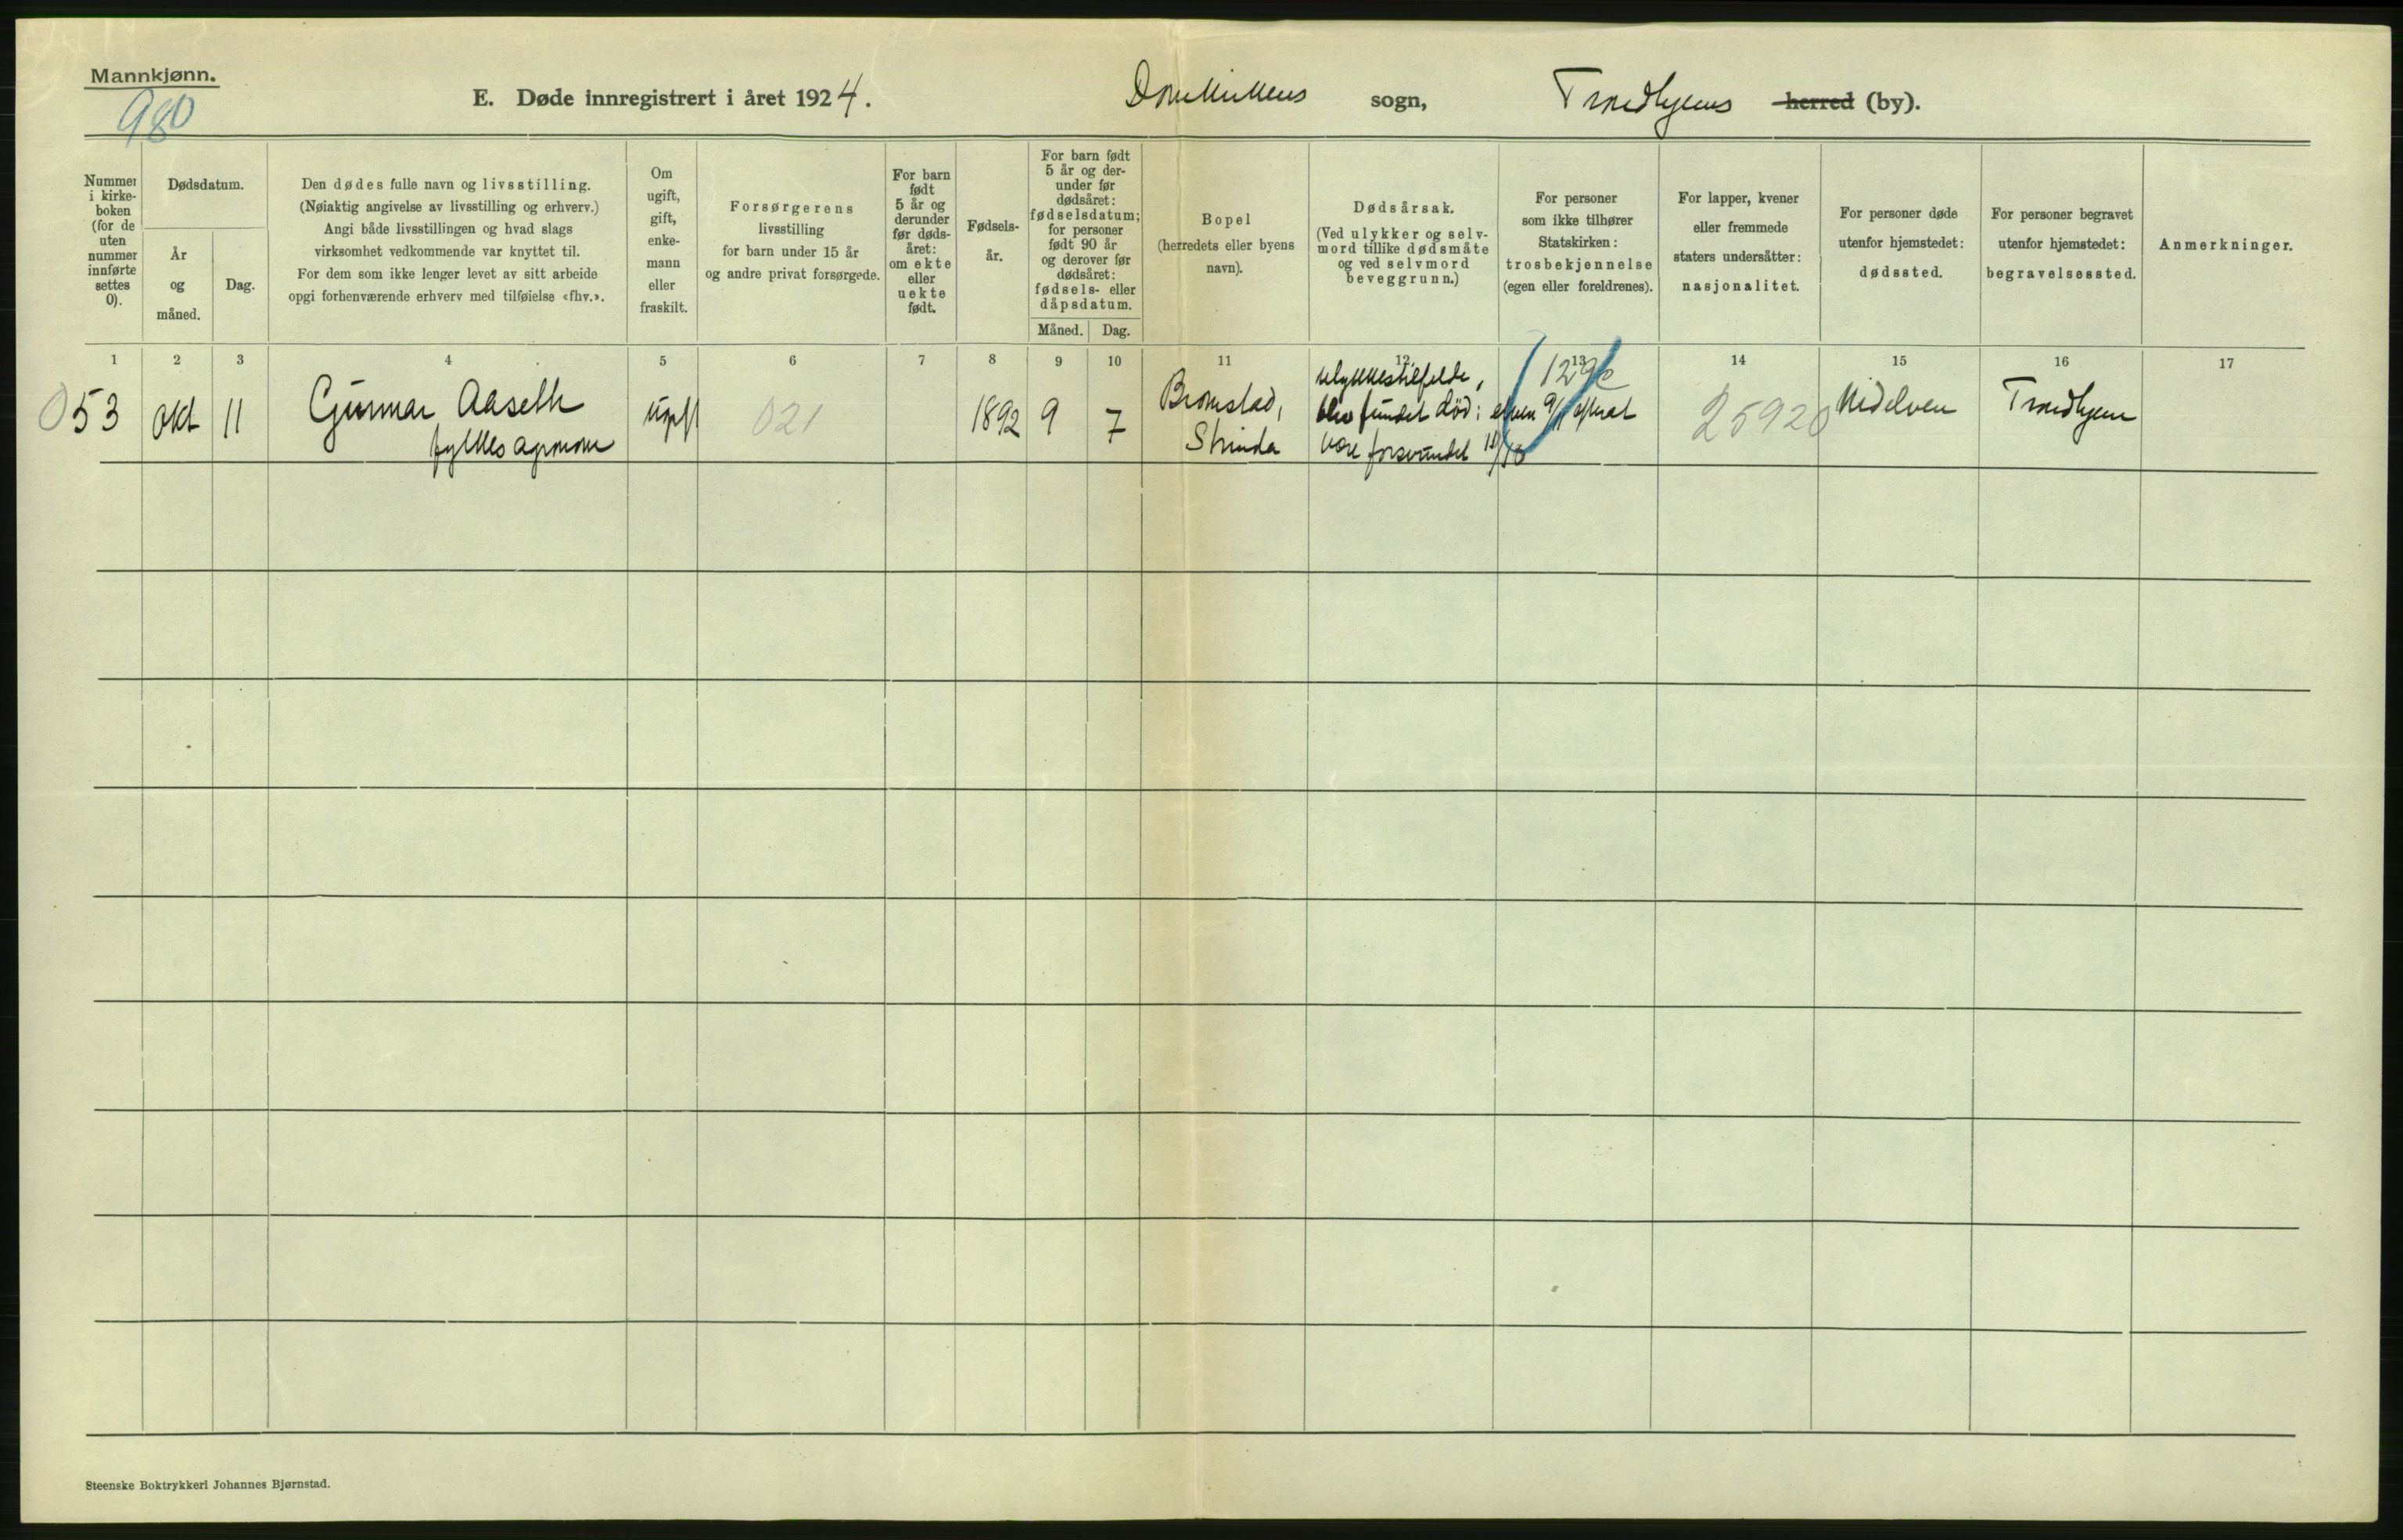 Mannkjønn.
980
E. Døde innregistrert i året 1924.
Domkirkens sogn,
Trondhjems herred (by).
Nummer i kirke-boken (for de uten nummer innførte settes 0).
Dødsdatum.
År og måned.
Dag.
Den dødes fulle navn og livsstilling.
(Nøiaktig angivelse av livsstilling og erhverv.)
Angi både livsstillingen og hvad slags
virksomhet vedkommende var knyttet til.
For dem som ikke lenger levet av sitt arbeide
opgi forhenværende erhverv med tilføielse «fhv.».
Om
ugift,
gift,
enke-
mann
eller
fraskilt.
Forsørgerens
livsstilling
for barn under 15 år
og andre privat forsørgede.
For barn
født
5 år og
derunder
før døds-
året:
om ekte
eller
uekte
født.
Fødsels-
år.
For barn født
5 år og der-
under før
dødsåret:
fødselsdatum;
for personer
født 90 år
og derover før
dødsåret:
fødsels- eller
dåpsdatum.
Måned.
Dag.
Bopel
(herredets eller byens
navn).
Dødsårsak.
(Ved ulykker og selv-
mord tillike dødsmåte
og ved selvmord
beveggrunn.)
For personer
som ikke tilhører
Statskirken:
trosbekjennelse
(egen eller foreldrenes).
For lapper, kvener
eller fremmede
staters undersåtter:
nasjonalitet.
For personer døde
utenfor hjemstedet:
dødssted.
For personer begravet
utenfor hjemstedet:
begravelsessted.
Anmerkninger.
1 2 3 4 5 6 7 8 9 10 11 12 13 14 15 16 17
053
Okt
11
Gunnar Aaseth
fylkesagronom
ugift
021
1892
9
7
Bromstad,
Strinda
ulykkestilfelde,
blev fundet død i elven 9/11 efterat
være forsvundet 11/10
129
25920
Nidelven
Trondhjem
Steenske Boktrykkeri Johannes Bjørnstad.